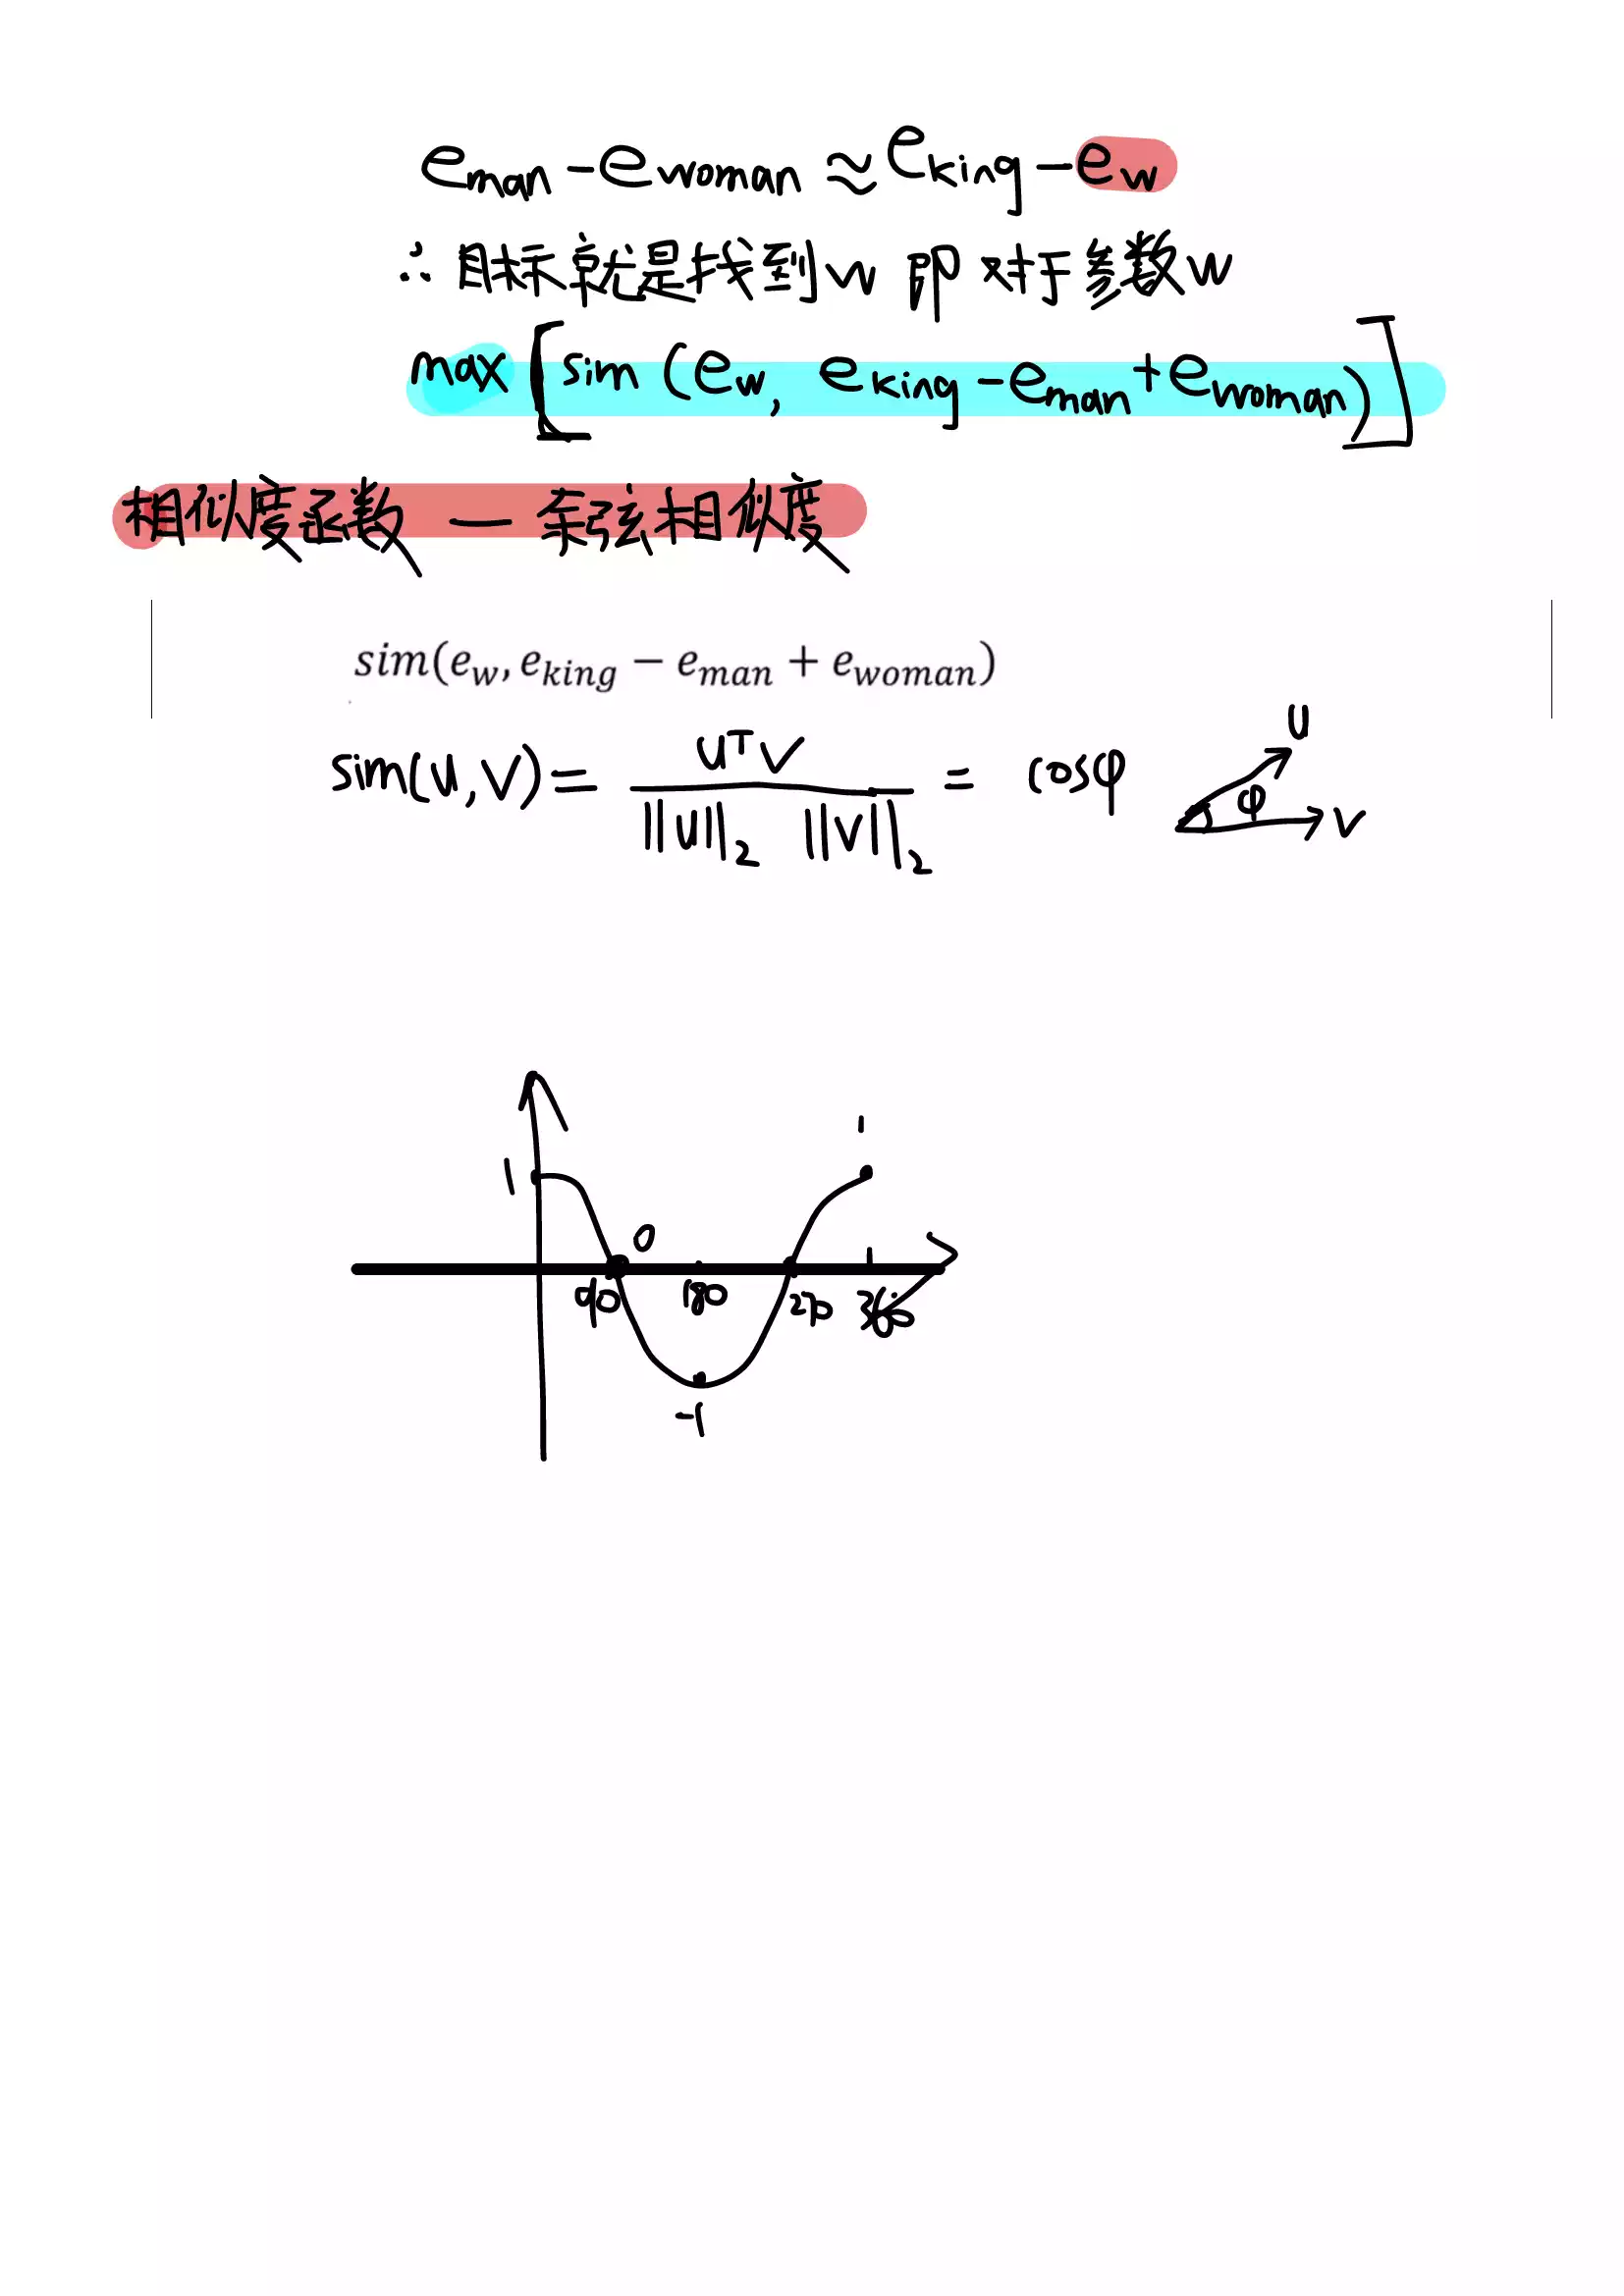 e_man - e_woman ≈ e_king - e_w
∴ 目标就是找到w 即 对于参数w
max [sim (e_w, e_king - e_man + e_woman)]
相似度函数 — 余弦相似度
sim(e_w, e_king − e_man + e_woman)
sim(u, v) = uᵀv / ||u||₂ ||v||₂ = cosφ
u
φ
v
1
1
0
90 180 270 360
-1